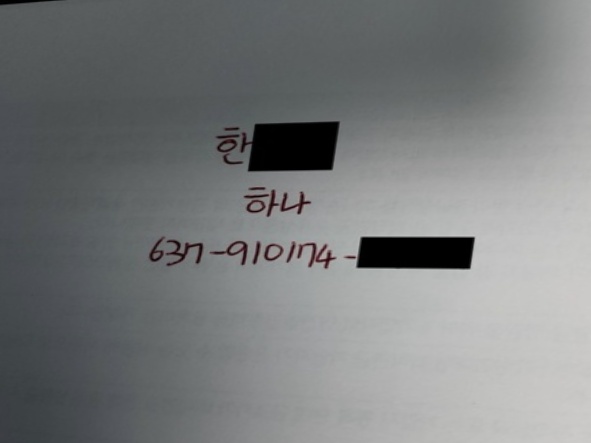 한
하나
637-910174-